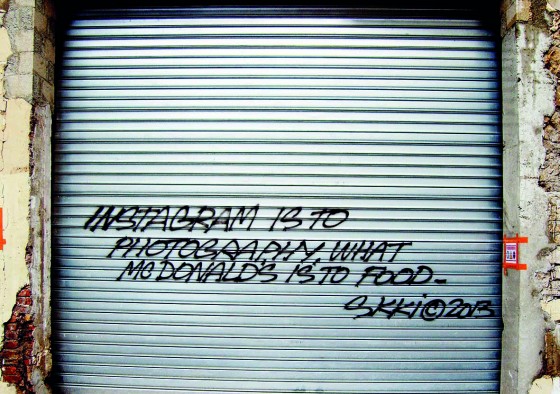 INSTAGRAM IS TO
PHOTOGRAPHY, WHAT
MCDONALD'S IS TO FOOD-
SKKI©2013